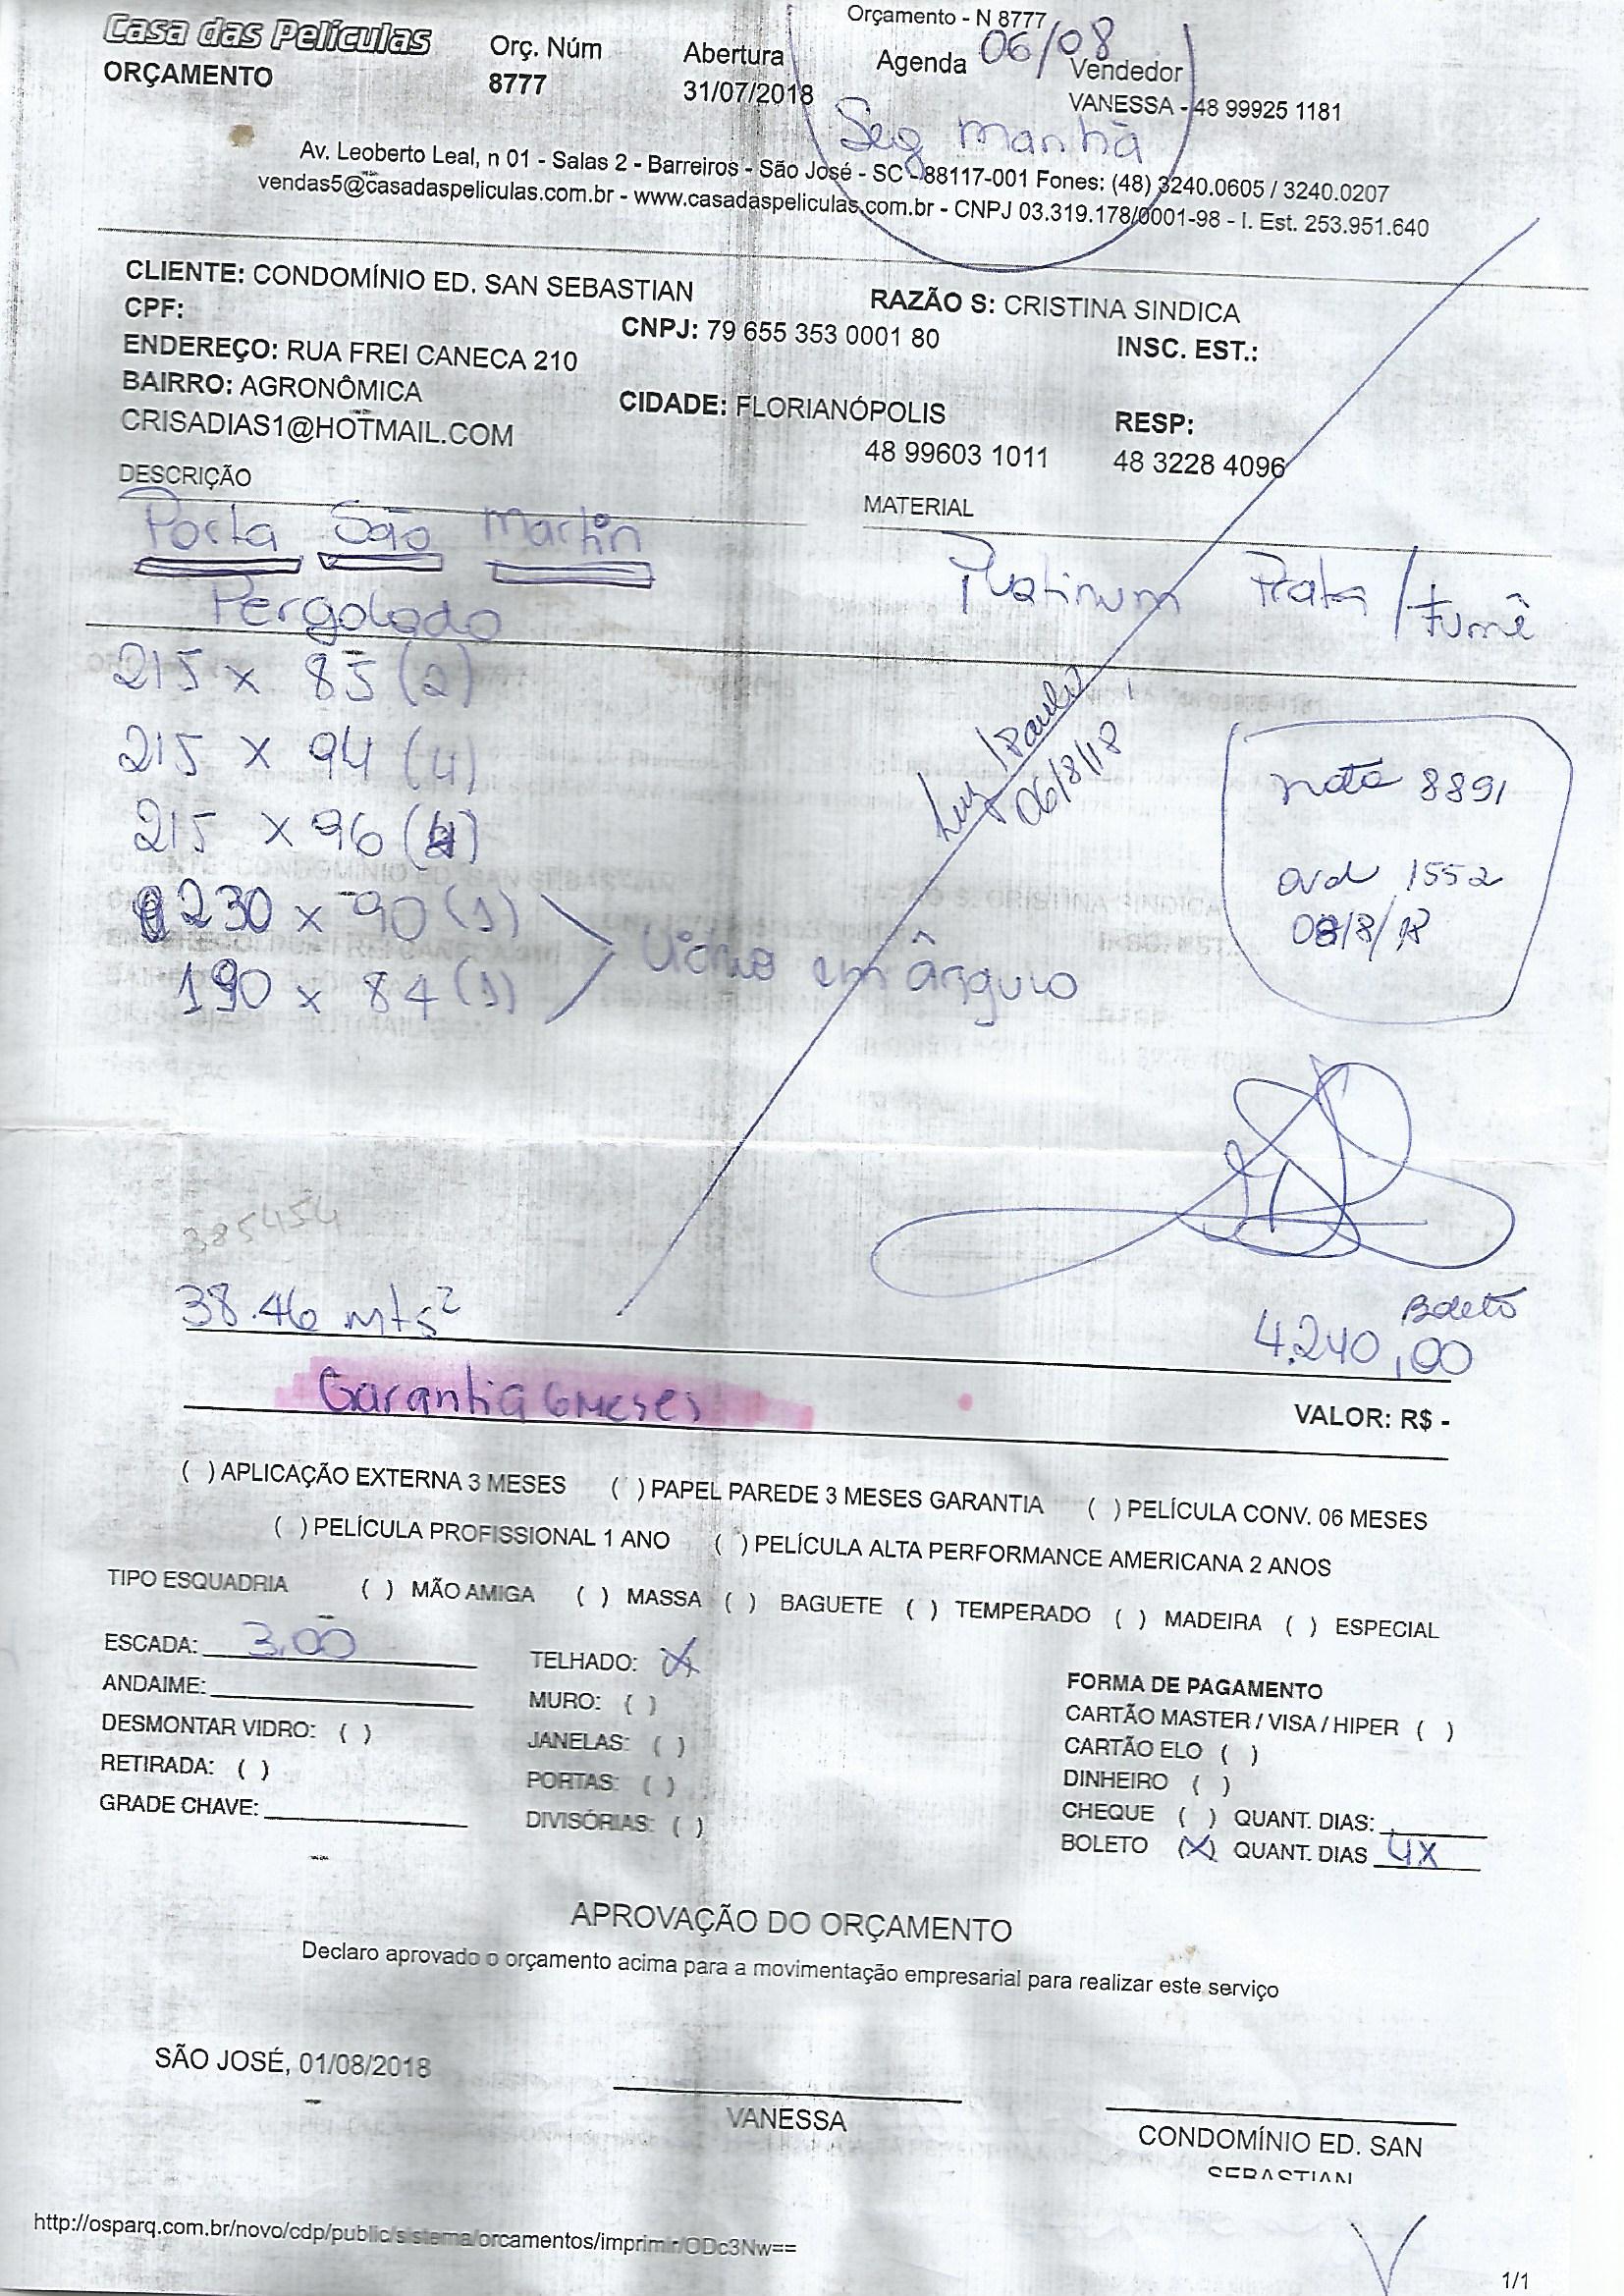 Orçamento - N 8777
Casa das Películas
ORÇAMENTO
Orç. Núm
8777
Abertura
31/07/2018
Agenda 06/08
Seg manhã
Vendedor
VANESSA - 48 99925 1181
Av. Leoberto Leal, n 01 - Salas 2 - Barreiros - São José - SC - 88117-001 Fones: (48) 3240.0605 / 3240.0207
vendas5@casadaspeliculas.com.br - www.casadaspeliculas.com.br - CNPJ 03.319.178/0001-98 - I. Est. 253.951.640
CLIENTE: CONDOMÍNIO ED. SAN SEBASTIAN
RAZÃO S: CRISTINA SINDICA
CPF:
CNPJ: 79 655 353 0001 80
INSC. EST.:
ENDEREÇO: RUA FREI CANECA 210
BAIRRO: AGRONÔMICA
CIDADE: FLORIANÓPOLIS
RESP:
CRISADIAS1@HOTMAIL.COM
48 99603 1011
48 3228 4096
DESCRIÇÃO
MATERIAL
Porta São Martin
Pergolado
Platinum Prata / fumê
215 x 85 (2)
215 x 94 (4)
215 x 96 (4)
230 x 90 (1)
190 x 84 (1)
Vidros em ângulo
Luiz / Paulo
06/8/18
nota 8891
ord 1552
08/8/18
385454
38.46 mts²
Boleto
4.240,00
Garantia 6 meses
VALOR: R$ -
( ) APLICAÇÃO EXTERNA 3 MESES ( ) PAPEL PAREDE 3 MESES GARANTIA ( ) PELÍCULA CONV. 06 MESES
( ) PELÍCULA PROFISSIONAL 1 ANO ( ) PELÍCULA ALTA PERFORMANCE AMERICANA 2 ANOS
TIPO ESQUADRIA ( ) MÃO AMIGA ( ) MASSA ( ) BAGUETE ( ) TEMPERADO ( ) MADEIRA ( ) ESPECIAL
ESCADA: 3.00
ANDAIME:
DESMONTAR VIDRO: ( )
RETIRADA: ( )
GRADE CHAVE:
TELHADO: (X)
MURO: ( )
JANELAS: ( )
PORTAS: ( )
DIVISÓRIAS: ( )
FORMA DE PAGAMENTO
CARTÃO MASTER / VISA / HIPER ( )
CARTÃO ELO ( )
DINHEIRO ( )
CHEQUE ( ) QUANT. DIAS:
BOLETO (X) QUANT. DIAS 4X
APROVAÇÃO DO ORÇAMENTO
Declaro aprovado o orçamento acima para a movimentação empresarial para realizar este serviço
SÃO JOSÉ, 01/08/2018
VANESSA
CONDOMÍNIO ED. SAN
SEBASTIAN
http://osparq.com.br/novo/cdp/public/sistema/orcamentos/imprimir/ODc3Nw==
1/1